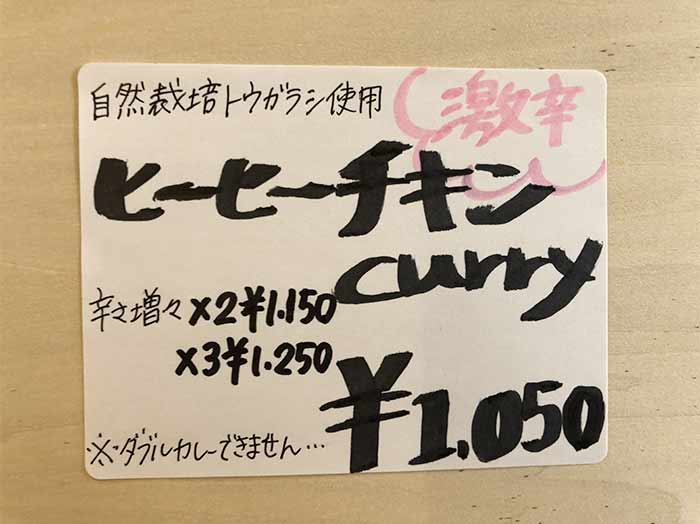 自然栽培トウガラシ使用
激辛
ヒーヒーチキン
curry
辛さ増々 ×2 ¥1.150
×3 ¥1.250
¥1.050
※ダブルカレーできません…